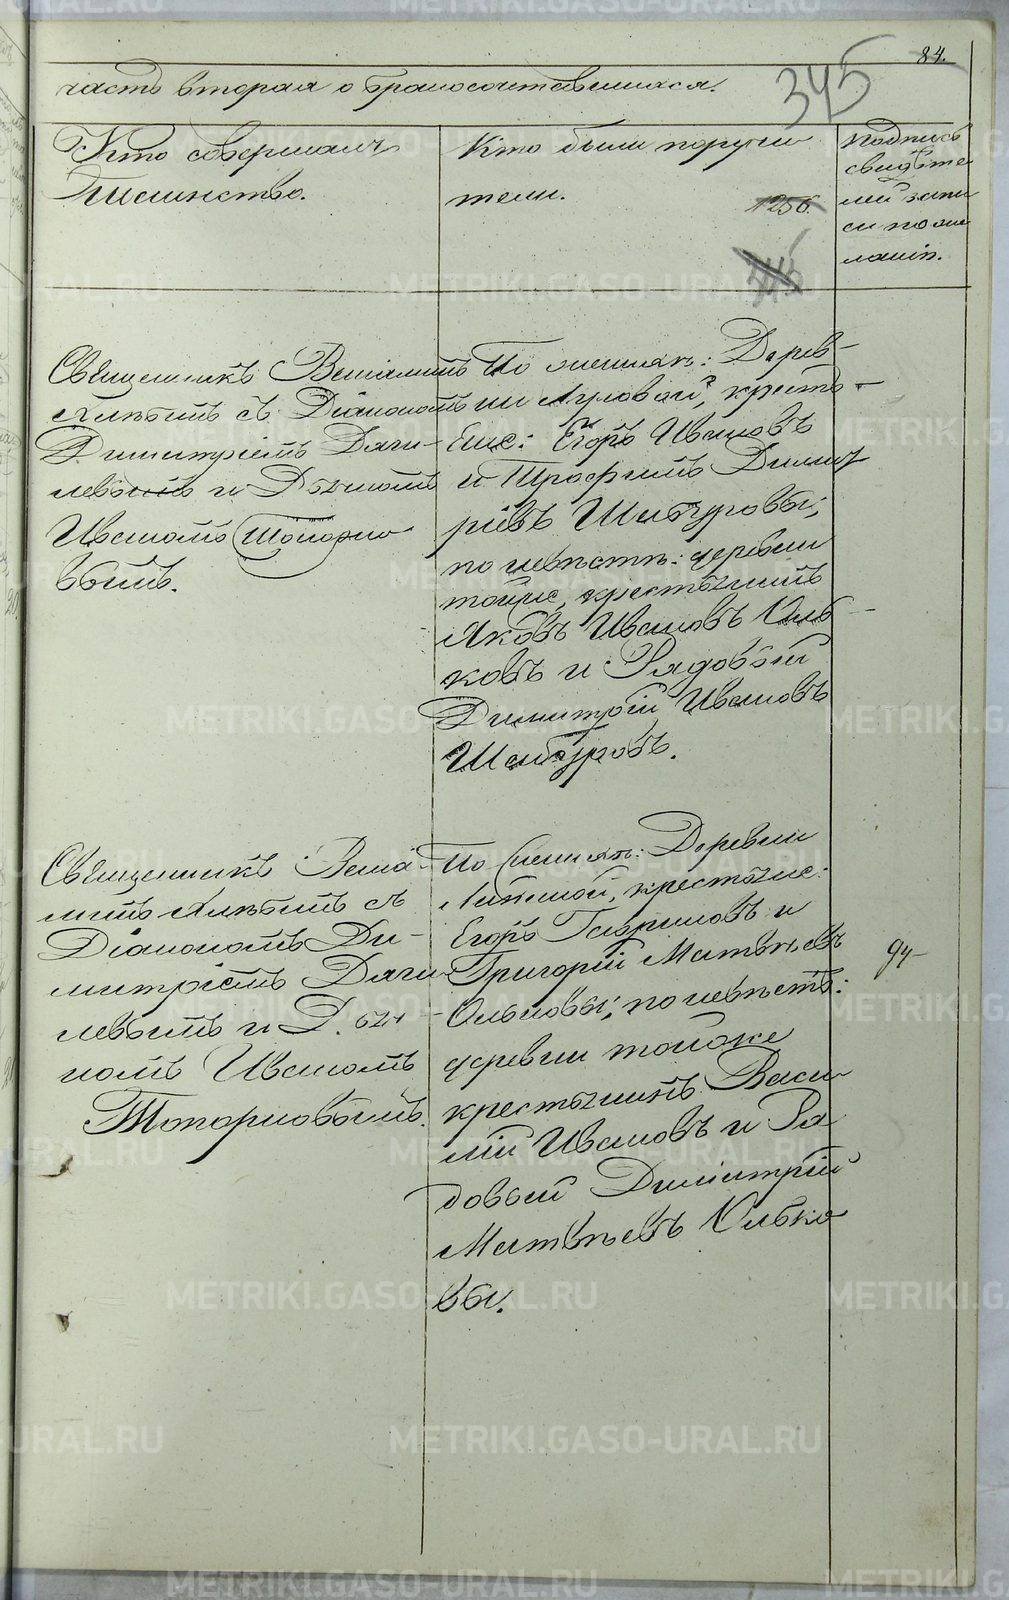 84.
345
часть вторая о бракосочетавшихся.
Кто совершалъ
Таинство.
Кто были поручи
тели.
1256.
Подпись
свидѣте
лей запи
си по же
ланію.
Священникъ Веніаминъ
съ Діакономъ
Димитріемъ Дяги-
левымъ и Дьячкомъ
Иваномъ Топорко
вымъ.
По женихѣ: Дерев-
ни крестья-
не: Егоръ Ивановъ
и Трофимъ Димит
ріевъ Шабуровы;
по невѣстѣ: деревни
тойже, крестьянинъ
Яковъ Ивановъ Ольк
ковъ и Рядовой
Димитрій Ивановъ
Шабуровъ.
Священникъ Веніа-
минъ съ
Діакономъ Ди-
митріемъ Дяги-
левымъ и Дьяч-
комъ Иваномъ
Топорковымъ.
По женихѣ: Деревни
крестьяне:
Егоръ Гавриловъ и
Григорій Матвѣевъ
по невѣстѣ:
деревни тойже
крестьянинъ Васи
лій Ивановъ и Ря
довый Димитрій
Матвѣевъ
вы.
METRIKI.GASO-URAL.RU